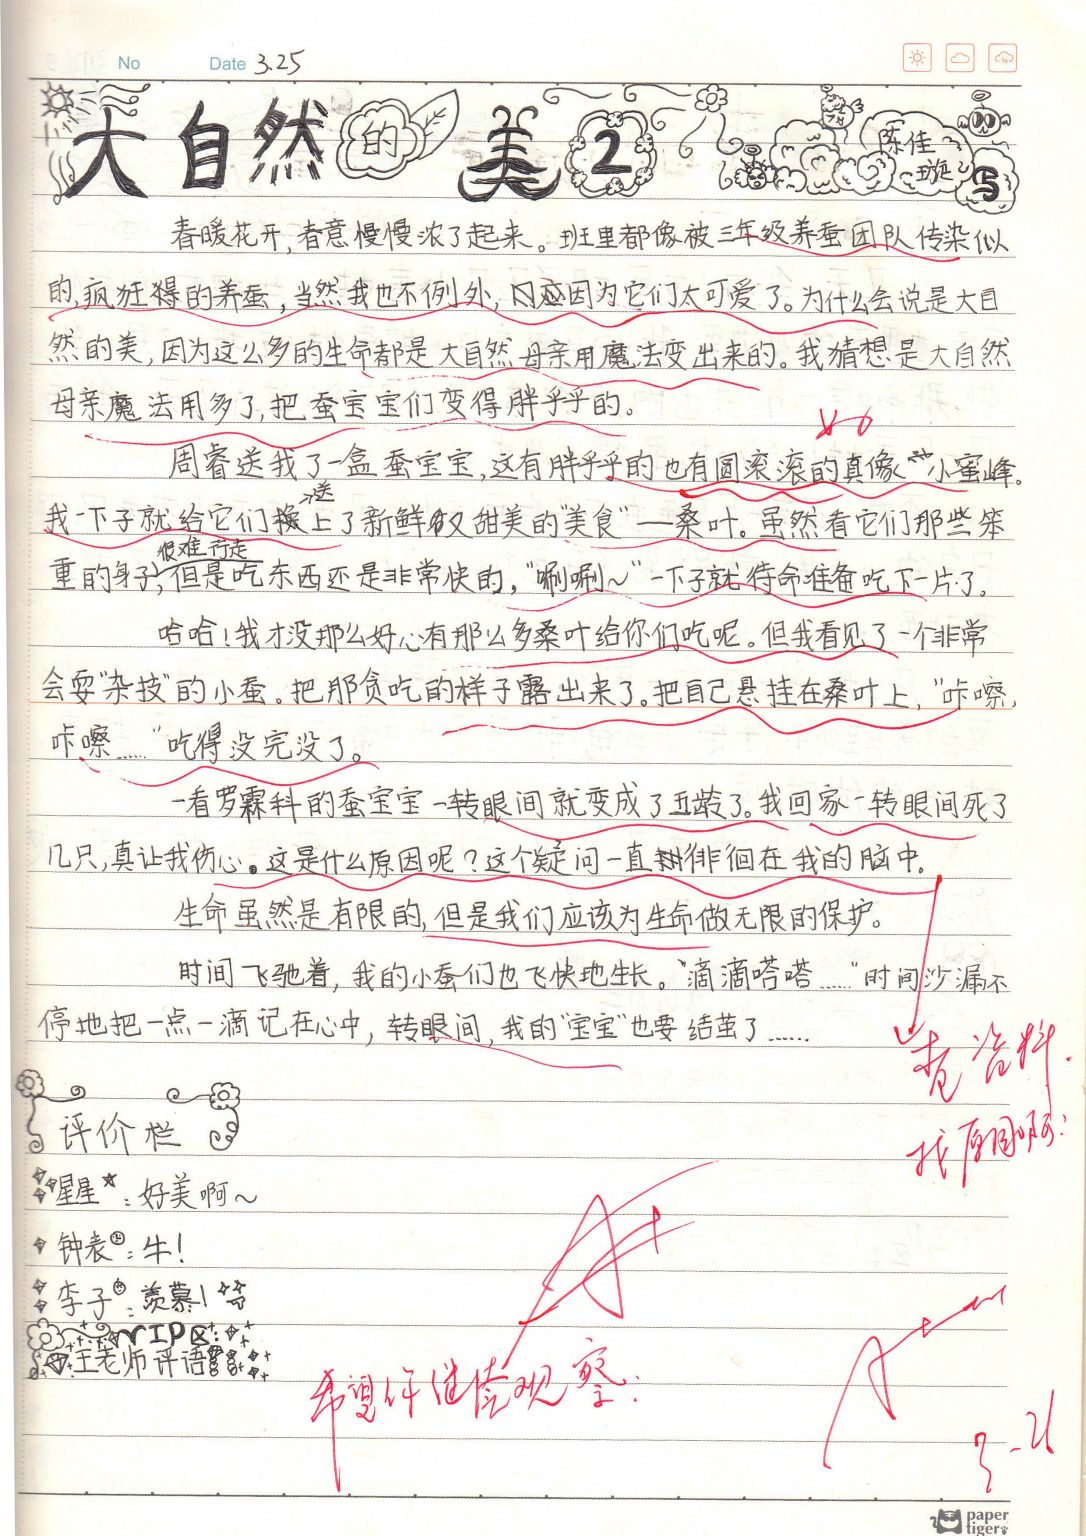 No Date 3.25
大自然的美2 陈佳璇写
春暖花开,春意慢慢浓了起来。班里都像被三年级养蚕团队传染似
的,疯狂得的养蚕,当然我也不例外,因为它们太可爱了。为什么会说是大自
然的美,因为这么多的生命都是大自然母亲用魔法变出来的。我猜想是大自然
母亲魔法用多了,把蚕宝宝们变得胖乎乎的。
周睿送我了一盒蚕宝宝,这有胖乎乎的也有圆滚滚的真像小蜜蜂。
我一下子就给它们送上了新鲜又甜美的“美食”——桑叶。虽然看它们那些笨
很难行走
重的身子,但是吃东西还是非常快的,“唰唰~”一下子就待命准备吃下一片了。
哈哈!我才没那么好心有那么多桑叶给你们吃呢。但我看见了一个非常
会耍“杂技”的小蚕。把那贪吃的样子露出来了。把自己悬挂在桑叶上,“咔嚓,
咔嚓……”吃得没完没了。
一看罗霖科的蚕宝宝一转眼间就变成了五龄了。我回家一转眼间死了
几只,真让我伤心。这是什么原因呢?这个疑问一直徘徊在我的脑中。
生命虽然是有限的,但是我们应该为生命做无限的保护。
时间飞驰着,我的小蚕们也飞快地生长。“滴滴嗒嗒……”时间沙漏不
停地把一点一滴记在心中,转眼间,我的“宝宝”也要结茧了……
查资料.
找原因啊:
评价栏
星星:好美啊~
钟表:牛!
李子:羡慕!
VIP区:
王老师评语
A+
希望你继续观察:
A+
paper
tiger